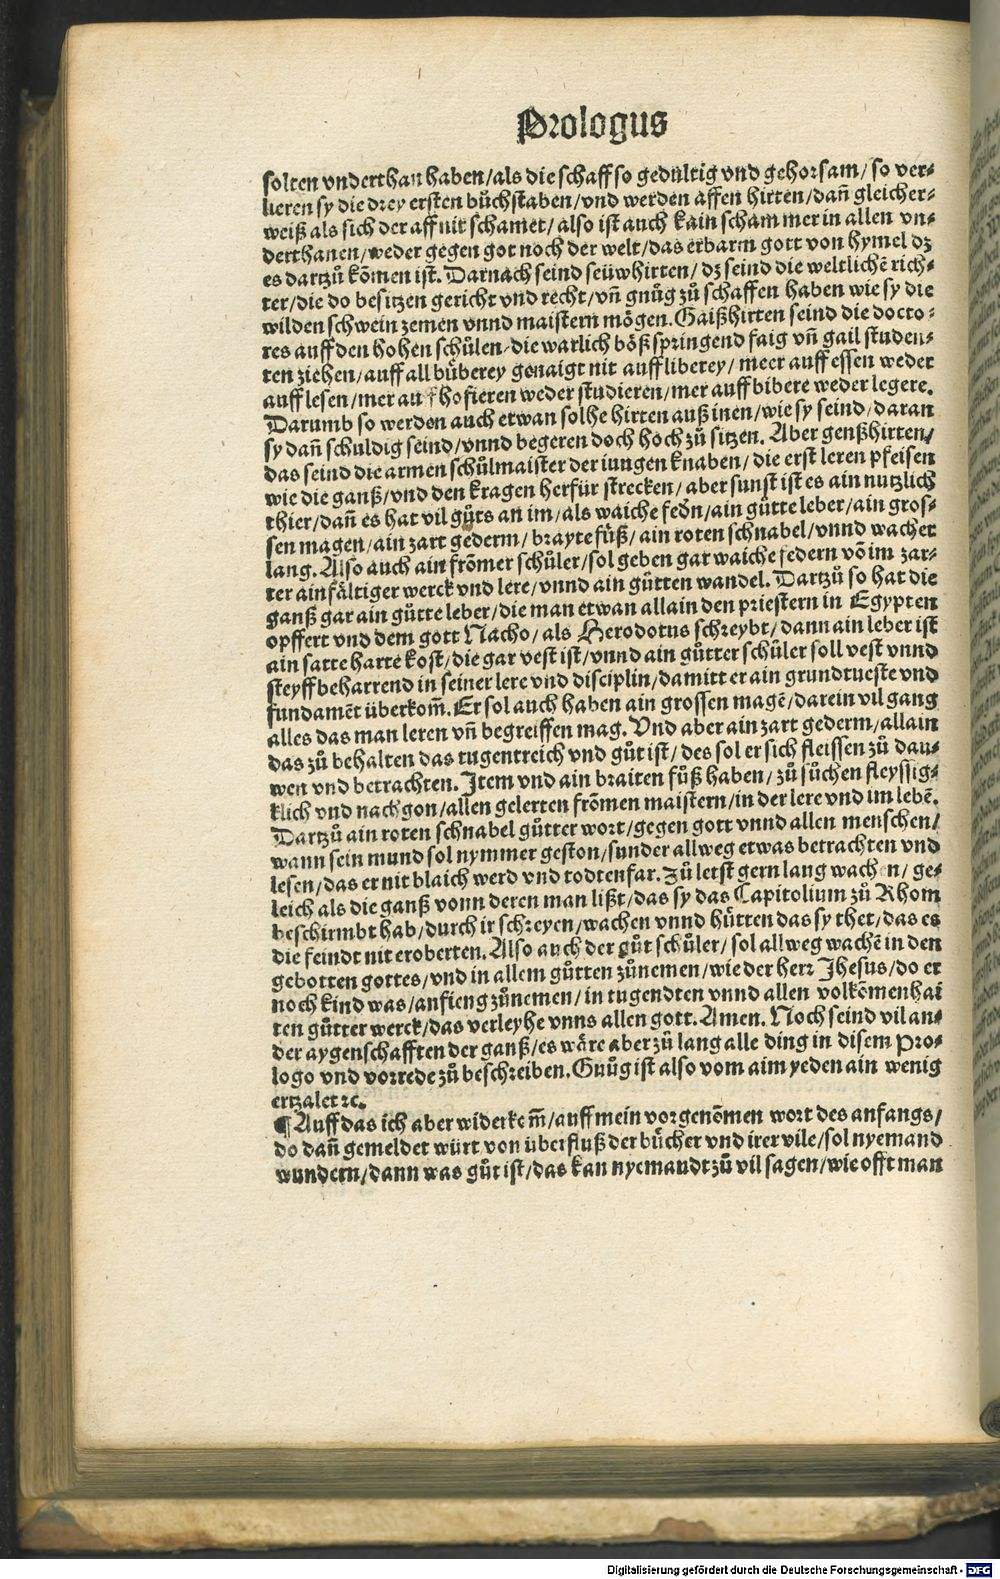 Prologus
solten vnderthan haben/als die schaff so gedultig vnd gehorsam/ so ver⸗
lieren sy die drey ersten bůchstaben/vnd werden affen hirten/dañ gleicher⸗
weiß als sich der aff nit schamet/ also ist auch kain scham mer in allen vn⸗
derthanen/weder gegen got noch der welt/das erbarm gott von hymel dz
es dartzů kōmen ist. Darnach seind seüwhirten/ dz seind die weltlichē rich⸗
ter/die do besitzen gericht vnd recht/vñ gnůg zů schaffen haben wie sy die
wilden schwein zemen vnnd maistern mögen. Gaißhirten seind die docto⸗
res auff den hohen schůlen/die warlich böß springend faig vñ gail studen⸗
ten ziehen/auff all bůberey genaigt nit auff liberey/ meer auff essen weder
auff lesen/mer auff hofieren weder studieren/mer auff bibere weder legere.
Darumb so werden auch etwan solhe hirten auß inen/wie sy seind/daran
sy dañ schuldig seind/vnnd begeren doch hoch zů sitzen. Aber genßhirten/
das seind die armen schůlmaister der iungen knaben/ die erst leren pfeisen
wie die ganß/vnd den kragen herfür strecken/ aber sunst ist es ain nutzlich
thier/dañ es hat vil gůts an im/als waiche fedn/ain gůtte leber/ain gros⸗
sen magen/ain zart gederm/ brayte fůß/ ain roten schnabel/vnnd wachet
lang. Also auch ain frōmer schůler/sol geben gar waiche federn vō im zar⸗
ter ainfältiger werck vnd lere/vnnd ain gůtten wandel. Dartzů so hat die
ganß gar ain gůtte leber/die man etwan allain den priestern in Egypten
opffert vnd dem gott Nacho/ als Herodotus schreybt/dann ain leber ist
ain satte harte kost/die gar vest ist/vnnd ain gůtter schůler soll vest vnnd
steyff beharrend in seiner lere vnd disciplin/damitt er ain grundtueste vnd
fundamēt überkom̄. Er sol auch haben ain grossen magē/darein vil gang
alles das man leren vñ begreiffen mag. Vnd aber ain zart gederm/allain
das zů behalten das tugentreich vnd gůt ist/des sol er sich fleissen zů dau⸗
wen vnd betrachten. Item vnd ain braiten fůß haben/zů sůchen fleyssig⸗
klich vnd nachgon/allen gelerten frōmen maistern/in der lere vnd im lebē.
Dartzů ain roten schnabel gůtter wort/gegen gott vnnd allen menschen/
wann sein mund sol nymmer geston/sunder allweg etwas betrachten vnd
lesen/das er nit blaich werd vnd todtenfar. Zů letst gern lang wachen/ ge⸗
leich als die ganß vonn deren man lißt/das sy das Capitolium zů Rhom
beschirmbt hab/durch ir schreyen/wachen vnnd hůtten das sy thet/das es
die feindt nit eroberten. Also auch der gůt schůler/ sol allweg wachē in den
gebotten gottes/vnd in allem gůtten zůnemen/wie der herr Jhesus/do er
noch kind was/anfieng zůnemen/in tugendten vnnd allen volkōmenhai
ten gůtter werck/das verleyhe vnns allen gott. Amen. Noch seind vil an⸗
der aygenschafften der ganß/es wäre aber zů lang alle ding in disem Pro⸗
logo vnd vorrede zů beschreiben. Gnůg ist also vom aim yeden ain wenig
ertzalet ꝛc.
¶ Auff das ich aber widerkem̄/auff mein vorgenōmen wort des anfangs/
do dañ gemeldet würt von überfluß der bůcher vnd irer vile/sol nyemand
wundern/dann was gůt ist/das kan nyemandt zů vil sagen/wie offt man
Digitalisierung gefördert durch die Deutsche Forschungsgemeinschaft - DFG